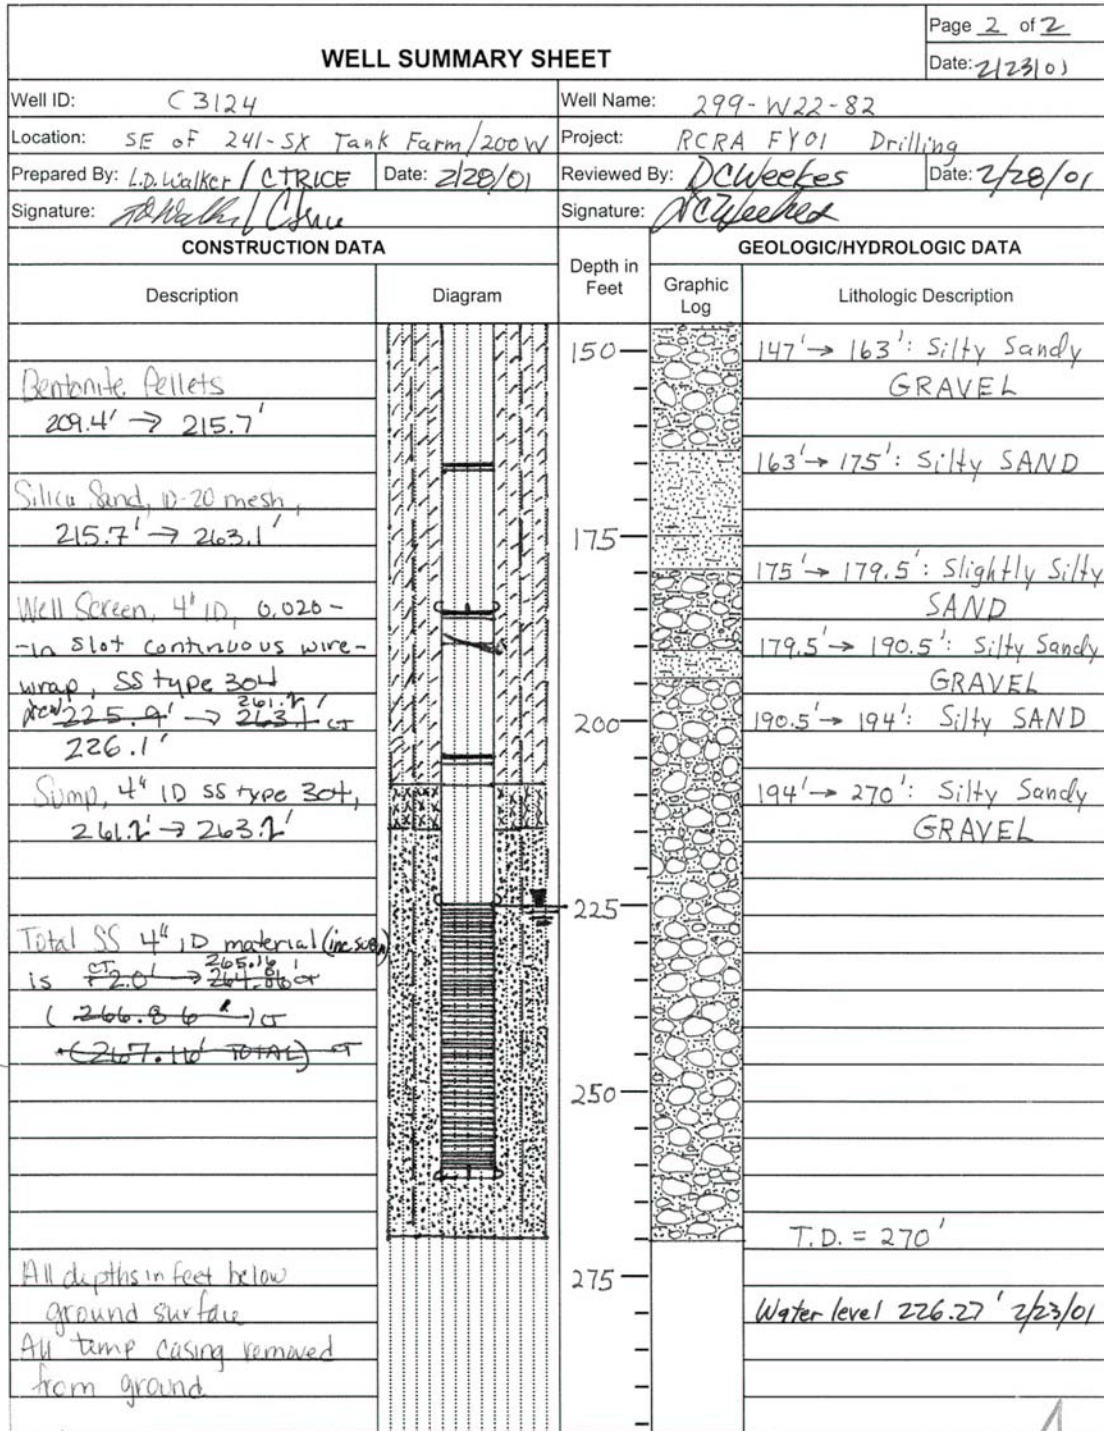 Page 2 of 2
WELL SUMMARY SHEET
Date: 2/23/01
Well ID: C3124
Well Name: 299-W22-82
Location: SE of 241-SX Tank Farm/200W
Project: RCRA FY01 Drilling
Prepared By: L.D. Walker / CTRICE
Date: 2/28/01
Reviewed By: DCWeekes
Date: 2/28/01
Signature:
Signature: DCWeekes
CONSTRUCTION DATA
Depth in Feet
GEOLOGIC/HYDROLOGIC DATA
Description
Diagram
Graphic Log
Lithologic Description
Bentonite Pellets
209.4' → 215.7'
Silica Sand, 10-20 mesh,
215.7' → 263.1'
Well Screen, 4" ID, 0.020-
-in slot continuous wire-
wrap, SS type 304
225.9' → 263.1 CT
261.2'
226.1'
Sump, 4" ID SS type 304,
261.2' → 263.2'
Total SS 4" ID material
is +2.0' → 264.86 CT
CT 265.16'
(266.86') CT
(267.16' TOTAL) CT
All depths in feet below
ground surface
All temp casing removed
from ground
150
175
200
225
250
275
147' → 163': Silty Sandy
GRAVEL
163' → 175': Silty SAND
175' → 179.5': Slightly Silty
SAND
179.5' → 190.5': Silty Sandy
GRAVEL
190.5' → 194': Silty SAND
194' → 270': Silty Sandy
GRAVEL
T.D. = 270'
Water level 226.27' 2/23/01